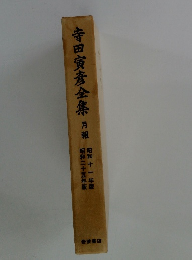 寺田寅彦全集
月報
昭和十一年版
昭和二十五年版
岩波書店